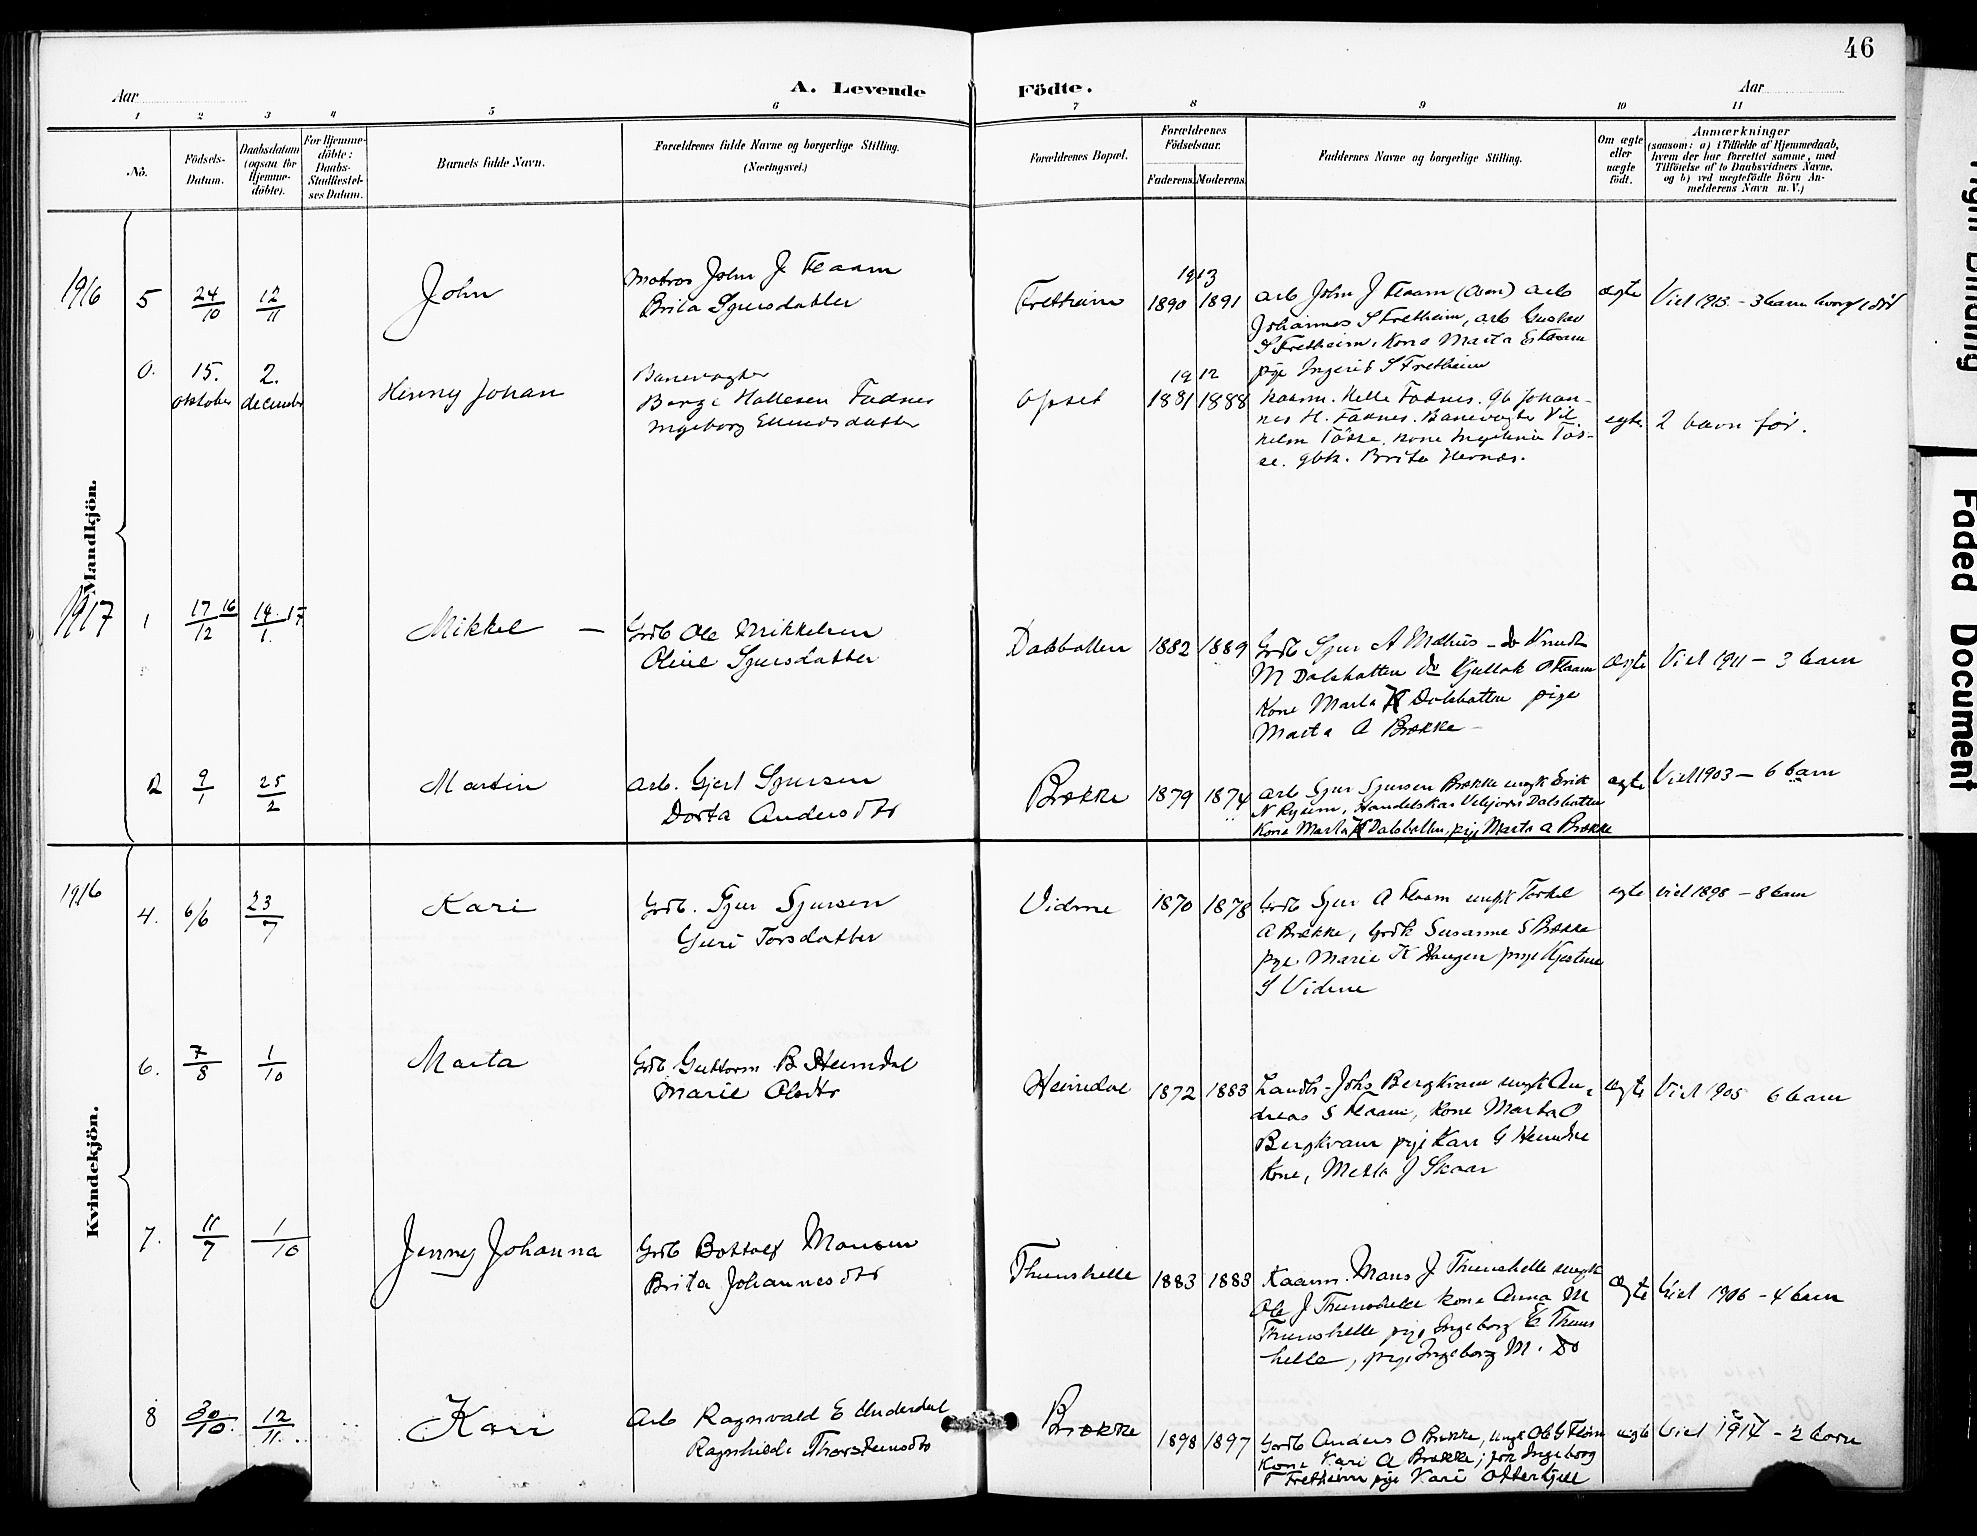 46
Aar
A. Levende Födte.
Aar
1 2 3 4 5 6 7 8 9 10 11
No.
Födsels-Datum.
Daabsdatum (ogsaa for Hjemme-döbte).
For Hjemme-döbte: Daabs-Stadfæstel-ses Datum.
Barnets fulde Navn.
Forældrenes fulde Navne og borgerlige Stilling. (Næringsvei.)
Forældrenes Bopæl.
Forældrenes Födselsaar.
Faderens. Moderens.
Faddernes Navne og borgerlige Stilling.
Om ægte eller uægte födt.
Anmærkninger
(saasom: a) i Tilfælde af Hjemmedaab,
hvem der har forrettet samme, med
Tilföielse af to Daabsvidners Navne,
og b) ved uægtefödte Börn An-
melderens Navn m. V.)
Mandkjön.
1916
5 24/10 12/11 John
Matros John J. Flaam
Brita Sjursdatter
Fretheim
1913
1890 1891
Arb John J Flaam (Aben) arb
Johannes S Fretheim, arb Gustav
S Fretheim, Kone Marta E Flaam
pige Ingerid S Fretheim
ægte
Viet 1913 - 3 barn
0. 15. oktober 2. december Henny Johan
Banevogter
Børge Hallesen Fadnes
Ingeborg Ellendsdatter
Opset
1912
1881 1888
kaarm. Helle Fadnes. gb Johan-
nes H. Fadnes. Banevogter Vil
helm Tösse, kone Ingeleiv Tös-
se. gbk. Brita Hernæs.
egte
2 barn før.
1917
1 17/12 16 14/1. 17 Mikkel —
Grdb Ole Mikkelsen
Oline Sjursdatter
Dalsbotten
1882 1889
Grdb Sjur A Mælhus - do Knudt
M Dalsbotten do Kjellak O Flaam
Kone Marta K Dalsbotten pige
Marta A Brække -
Ægte
Viet 1911 - 3 barn
2 9/1 25/2 Martin
Arb. Gjert Sjursen
Dorta Andersdtr
Brække
1879 1874
Arb Sjur Sjursen Brække ungk Erik
N Ryum, Handelskar Vebjørn Dalsbotten
Kone Marta K Dalsbotten, pige Marta A Brække
ægte
Viet 1903 - 6 barn
Kvindekjön.
1916
4. 6/6 23/7 Kari
Grdb. Sjur Sjursen
Guri Torsdatter
Vidme
1870 1878
Grdb Sjur A Flaam ungk Torkel
A Brække, Grdk Susanne S Brække
pge. Marie K Haugen pige Kjestine
S Vidme
egte
viet 1898 - 8 barn
6. 7/8 1/10 Marta
Grdb. Guttorm B Heimdal
Marie Olsdtr
Heimdal
1872 1883
Landh- Johs Bergkvam ungk An-
dreas S Flaam, Kone Marta O
Bergkvam pige Kari G Heimdal
Kone, Metta J Skaar
ægte
Viet 1905 6 barn
7. 11/7 1/10 Jenny Johanna
Grdb Bottolf Monsen
Brita Johannesdtr
Thunshelle
1883 1883
Kaarm. Mons J Thunshelle ungk
Ole J Thunshelle kone Anna M
Thunshelle pige Ingeborg E Thuns
helle, pige Ingeborg M. Do
Ægte
Viet 1906 - 4 barn
8 30/10. 12/11. Kari
Arb Ragnvald E Underdal
Ragnhilda Thorsteinsdtr
Brække
1898 1897
Gordb Anders O Brække, ungk Ole G Flaam
Kone Kari A Brække; pige Ingeborg
T Fretheim pige Kari Otterhjell
ægte
Viet 1914 - 2 barn
Binding
Faded Document